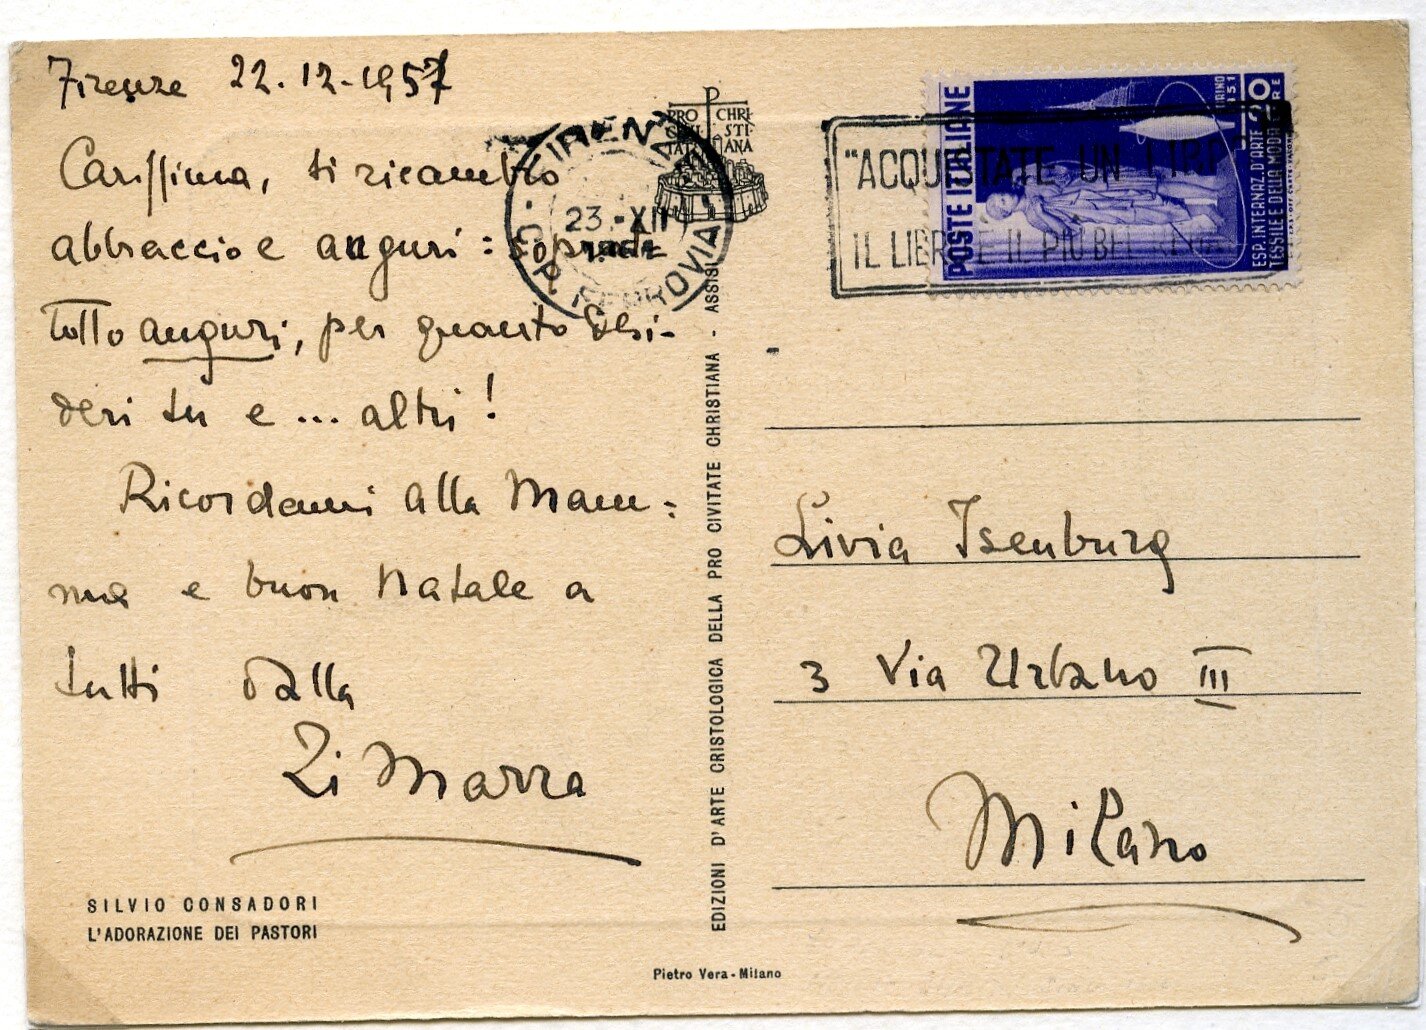 Firenze 22.12.1957
Carissima, ti ricambio
abbraccio e auguri: soprat
tutto auguri, per quanto desi-
deri tu e... altri!
Ricordami alla Mam=
ma e buon Natale a
tutti dalla
Zi Marra
SILVIO CONSADORI
L'ADORAZIONE DEI PASTORI
PRO CHRI
CIVI STI
TATE ANA
FIRENZE
23.-XII
FERROVIA
EDIZIONI D'ARTE CRISTOLOGICA DELLA PRO CIVITATE CHRISTIANA - ASSISI
Pietro Vera - Milano
"ACQUISTATE UN LIBRO
IL LIBRO È IL PIÙ BEL REGALO
POSTE ITALIANE
ESP. INTERNAZ. D'ARTE
TESSILE E DELLA MODA
TORINO
1951
20
LIRE
Livia Isenburg
3 Via Urbano III
Milano